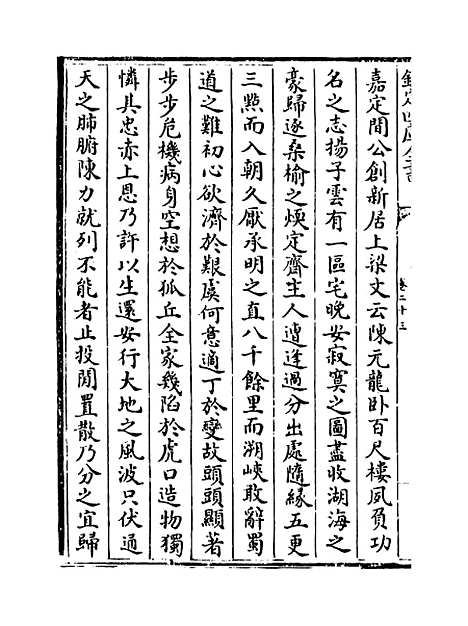 欽定四庫全書
卷二十三
嘉定間公創新居上梁文云陳元龍卧百尺樓夙負功
名之志揚子雲有一區宅晚安寂寞之圖盡收湖海之
豪歸逐桑榆之煖定齋主人遭逢過分出處隨緣五更
三點而入朝久厭承明之直八千餘里而溯峽敢辭蜀
道之難初心欲濟於艱虞何意適丁於變故頭頭顯著
步步危機病身空想於狐丘全家幾陷於虎口造物獨
憐其忠赤上恩乃許以生還安行大地之風波只伏通
天之肺腑陳力就列不能者止投閒置散乃分之宜歸